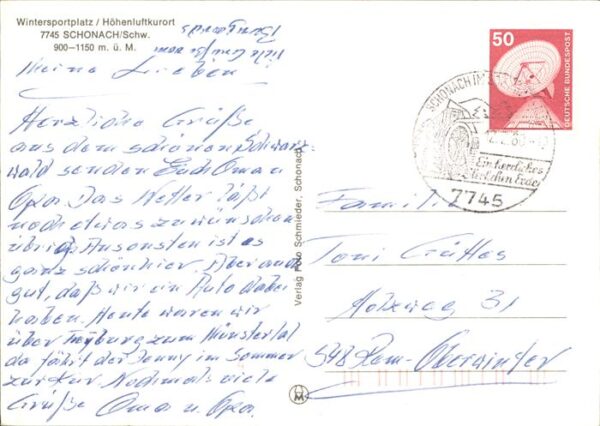 Wintersportplatz / Höhenluftkurort
7745 SCHONACH/Schw.
900–1150 m. ü. M.
Meine Lieben!
Herzliche Grüße
aus dem schönen Schwarz-
wald senden Euch Oma u.
Opa. Das Wetter läßt
noch etwas zu wünschen
übrig. Ansonsten ist es
ganz schön hier. Aber auch
gut, daß wir ein Auto dabei
haben. Heute waren wir
über Freiburg zum Münstertal
da fährt der Jonny im Sommer
zur Kur. Nochmals viele
Grüße Oma u. Opa.
Verlag Foto Schmieder, Schonach
50
DEUTSCHE BUNDESPOST
SCHONACH IM
Ein herrliches
Stückchen Erde
7745
Familie
Toni
Holzweg 31
548 Rem-Oberwinter